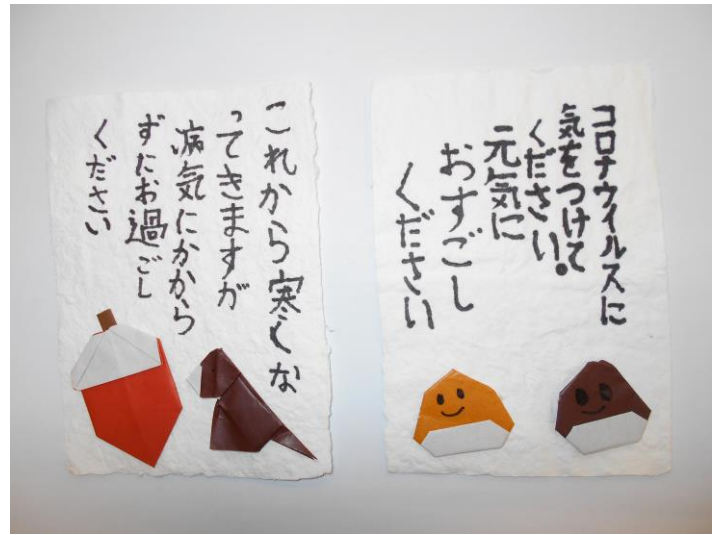 これから寒くな
ってきますが
病気にかから
ずにお過ごし
ください
コロナウイルスに
気をつけて
ください。
元気に
おすごし
ください